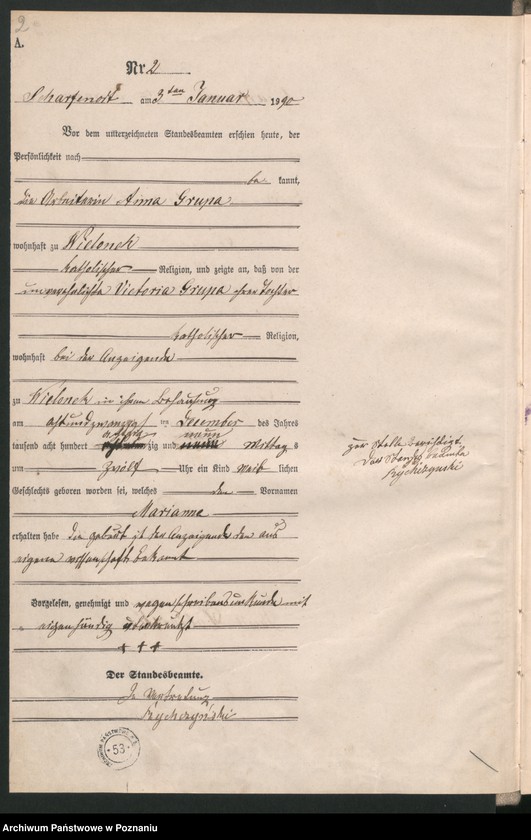 2
A.
Nr. 2
Scharfenort am 3ten Januar 1890
Vor dem unterzeichneten Standesbeamten erschien heute, der
Persönlichkeit nach
be kannt,
die Arbeiterin Anna Grupa
wohnhaft zu Wielonek
katholischer Religion, und zeigte an, daß von der
unverehelichte Victoria Grupa ihrer Tochter
katholischer Religion,
wohnhaft bei der Anzeigende
zu Wielonek in ihrer Behausung
am achtundzwanzigst en December des Jahres
achtzig neun
tausend acht hundert zig und Mittag s
um zwölf Uhr ein Kind weib lichen
Geschlechts geboren worden sei, welches den Vornamen
Marianna
erhalten habe die Geburt ist der Anzeigende aus
eigene wissenschaft bekannt
Vorgelesen, genehmigt und wegen schreibensunkunde mit
eigenhändig unterkreuzt
+ + +
Der Standesbeamte.
In Vertretung
Rychczyński
zur Stelle berichtigt
Der Standesbeamte
Rychczynski
53
Archiwum Państwowe w Poznaniu